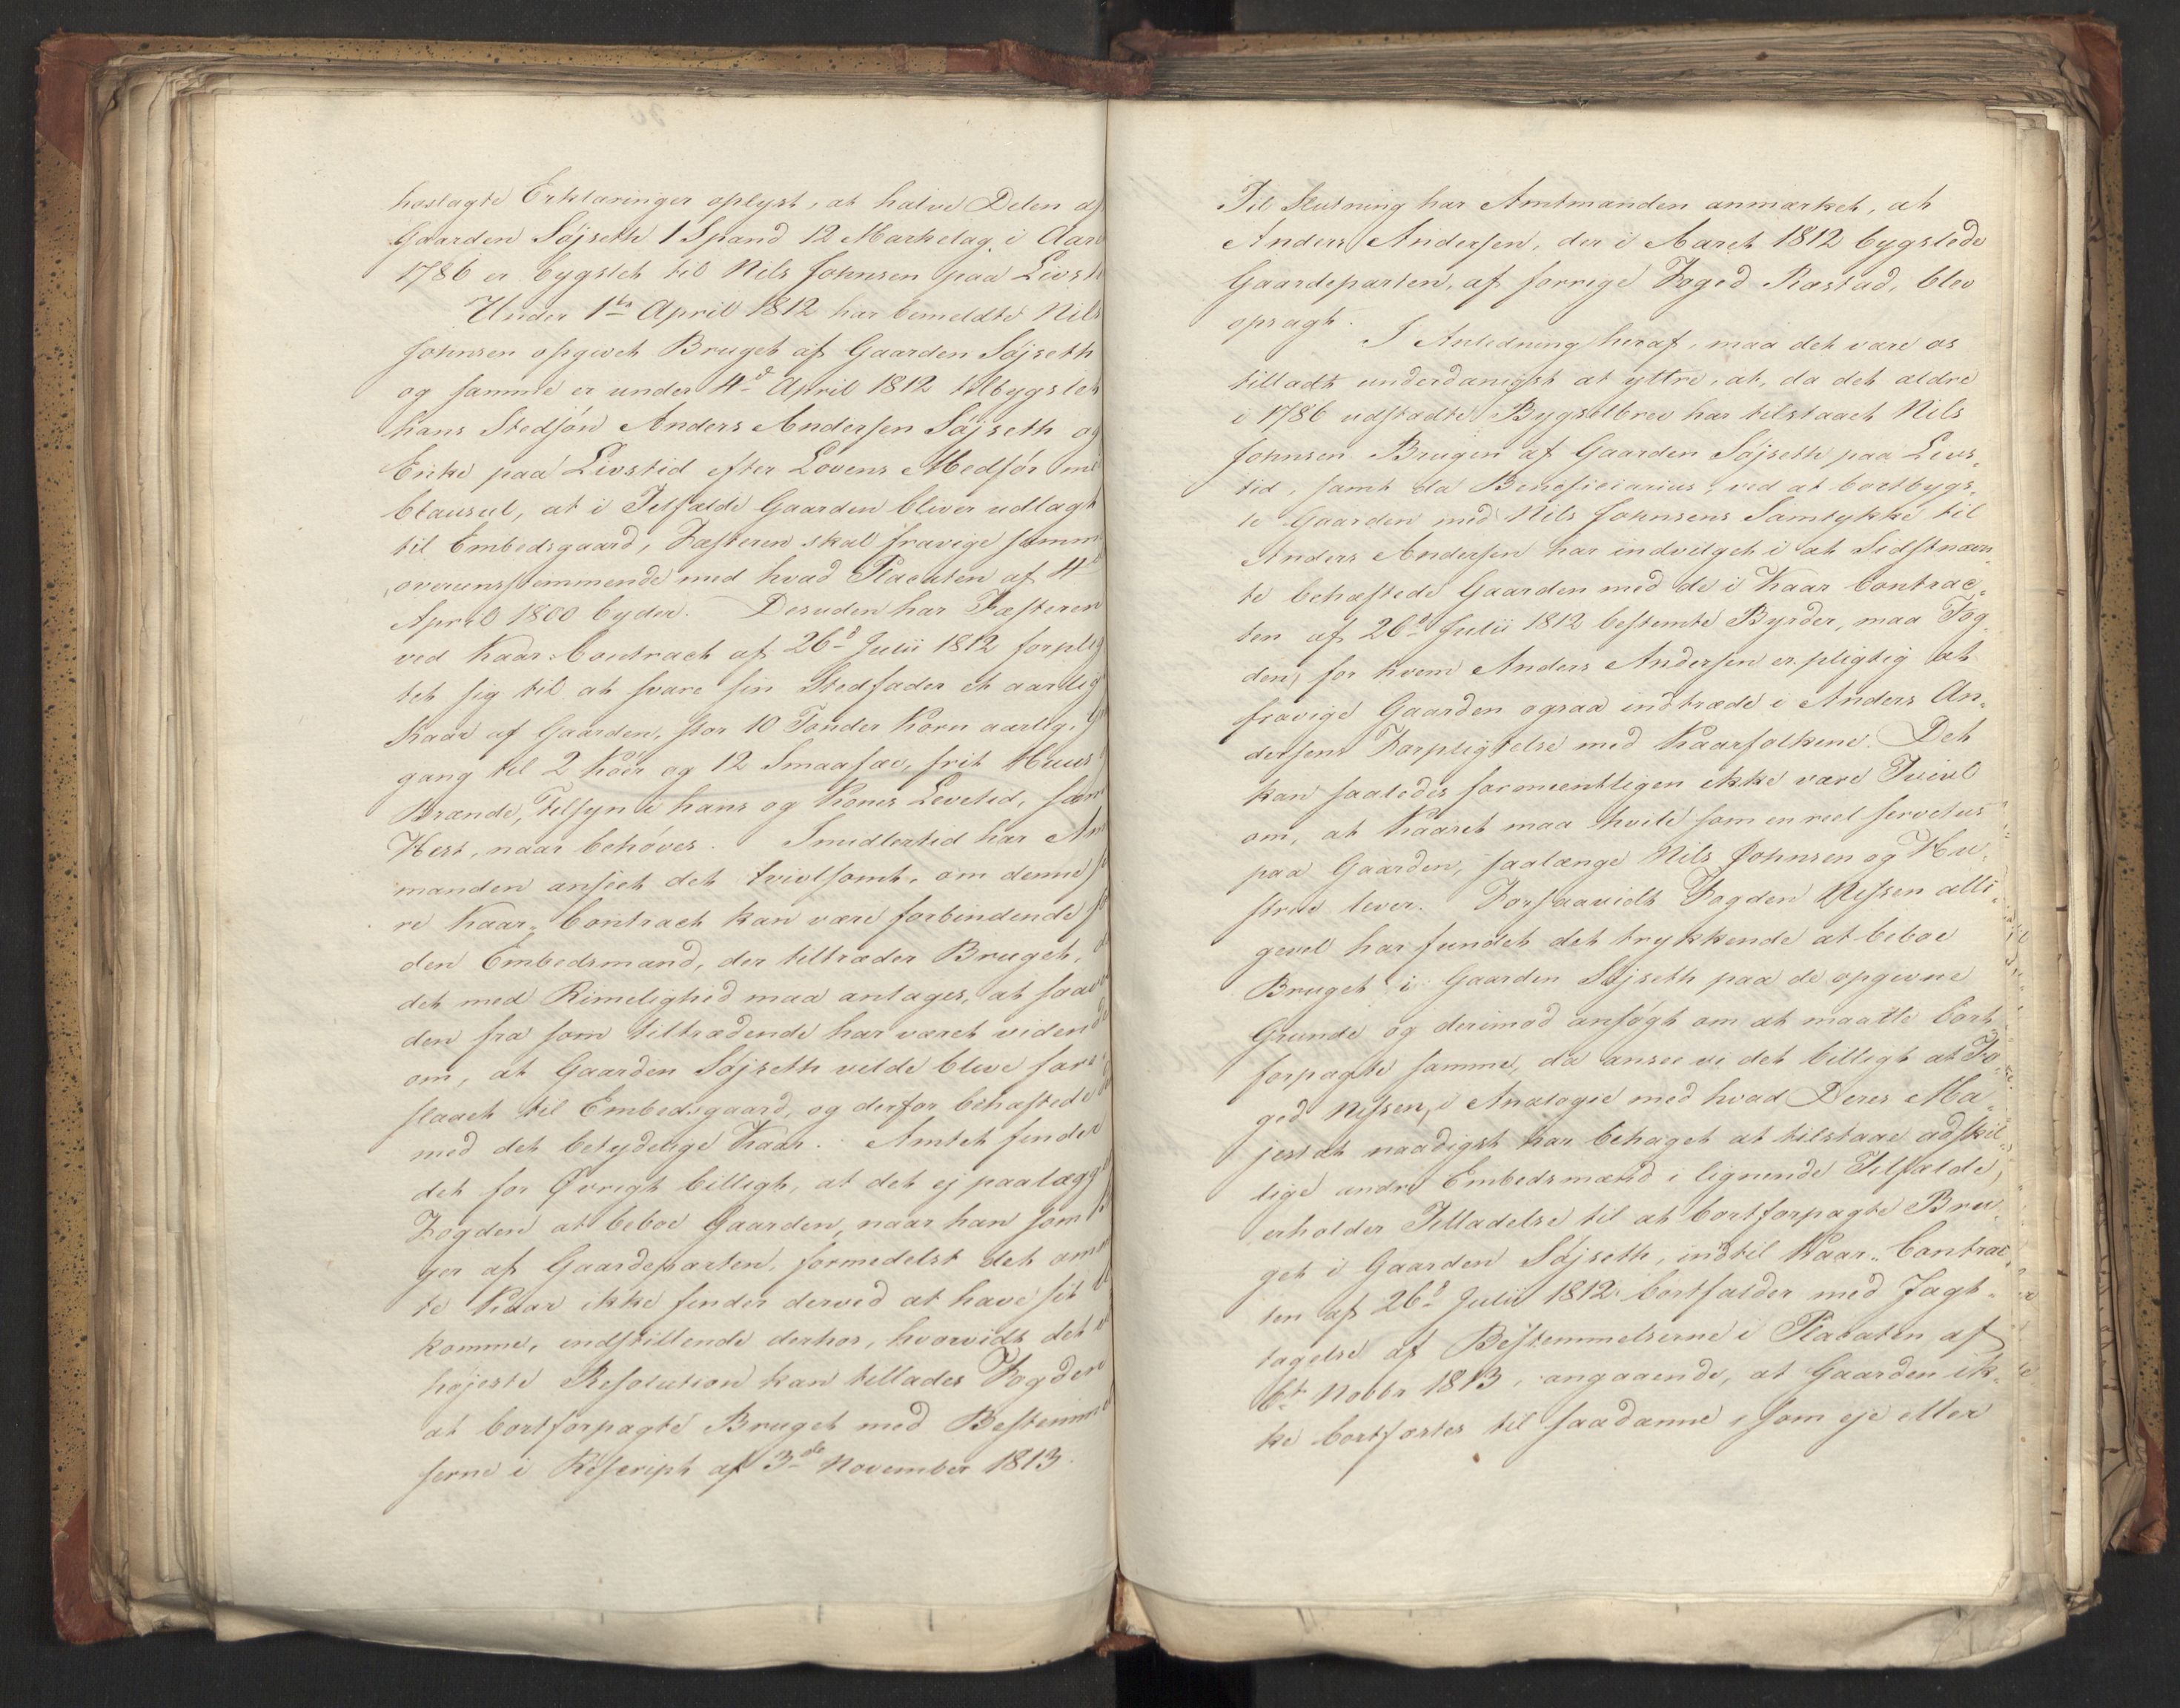 hoslagte Erklæringer oplyst, at halve Delen af
Gaarden Søjseth 1 Spand 12 Markelag i Aar
1786 er bygslet til Nils Johnsen paa Livst
Under 1ste April 1812 har bemeldte Nils
Johnsen opgivet Bruget af Gaarden Søjseth
og samme er under 4d April 1812 tilbygslet
hans Stedsøn Anders Andersen Søjseth og
Enke paa Livstid efter Lovens Medfør me
Clausul, at i Tilfælde Gaarden bliver udlagt
til Embedsgaard, Fæsteren skal fravige samm
overensstemmende med hvad Placaten af 4d
April 1800 byder. Desuden har Fæsteren
ved Kaar-Contract af 26d Julii 1812 forplig
tet sig til at svare sin Stedfader et aarlig
Kaar af Gaarden, stor 10 Tønder Korn aarlig,
gang til 2 Køer og 12 Smaafæ, frit Huus
Brænde, Tilsyn i hans og Kones Levetid, sam
Hest, naar behøves. Imidlertid har Am
manden anseet det tvivlsomt, om denne
re Kaar-Contract kan være forbindende
den Embedsmand, der tiltræder Bruget,
det med Rimelighed maa antages, at saav
den fra som tiltrædende har været viden
om, at Gaarden Søjseth vilde blive fore
slaaet til Embedsgaard, og derfor behæftede
med det betydelige Kaar. Amtet finder
det for Øvrigt billigt, at det ej paalægg
Fogden at beboe Gaarden, naar han som
ger af Gaardeparten, formedelst det om
te Kaar ikke finder derved at have sit
komme, indstillende derhos, hvorvidt det
højeste Resolution kan tillades Fogden
at bortforpagte Bruget med Bestemm
serne i Rescript af 3de November 1813.
Til Slutning har Amtmanden anmærket, at
Anders Andersen, der i Aaret 1812 bygslede
Gaardeparten, af forrige Foged Røstad, blev
opsagt.
I Anledning heraf, maa det være os
tilladt underdanigst at yttre, at, da det ældre
i 1786 udstædte Bygselbrev har tilstaaet Nils
Johnsen Brugen af Gaarden Søjseth paa Livs-
tid, samt da Beneficiarius, ved at bortbygs-
le Gaarden med Nils Johnsens Samtykke til
Anders Andersen har indvilget i at Sidstnævn
te behæftede Gaarden med de i Kaar Contrac-
ten af 26d Julii 1812 bestemte Byrder, maa Fog-
den, for hvem Anders Andersen er pligtig at
fravige Gaarden ogsaa indtræde i Anders An-
dersens Forpligtelse med Kaarfolkene. Det
kan saaledes formeentligen ikke være Tvivl
om, at Kaaret maa hvile som en reel servetus
paa Gaarden, saalænge Nils Johnsen og Hu-
strue lever. Forsaavidt Fogden Nissen alli-
gevel har fundet det trykkende at beboe
Bruget i Gaarden Søjseth paa de opgivne
Grunde og derimod ansøgt om at maatte bort
forpagte samme, da ansee vi det billigt at Fo-
ged Nissen, i Analogie med hvad Deres Ma-
jestæt naadigst har behaget at tilstaae adskil-
lige andre Embedsmænd i lignende Tilfælde,
erholder Tilladelse til at bortforpagte Bru-
get i Gaarden Søjseth, indtil Kaar-Contrac-
ten af 26d Julii 1812 bortfalder med Jagt-
tagelse af Bestemmelserne i Placaten af
6te Novbr 1813, angaaende, at Gaarden ik-
ke bortfæstes til saadanne, som eje eller